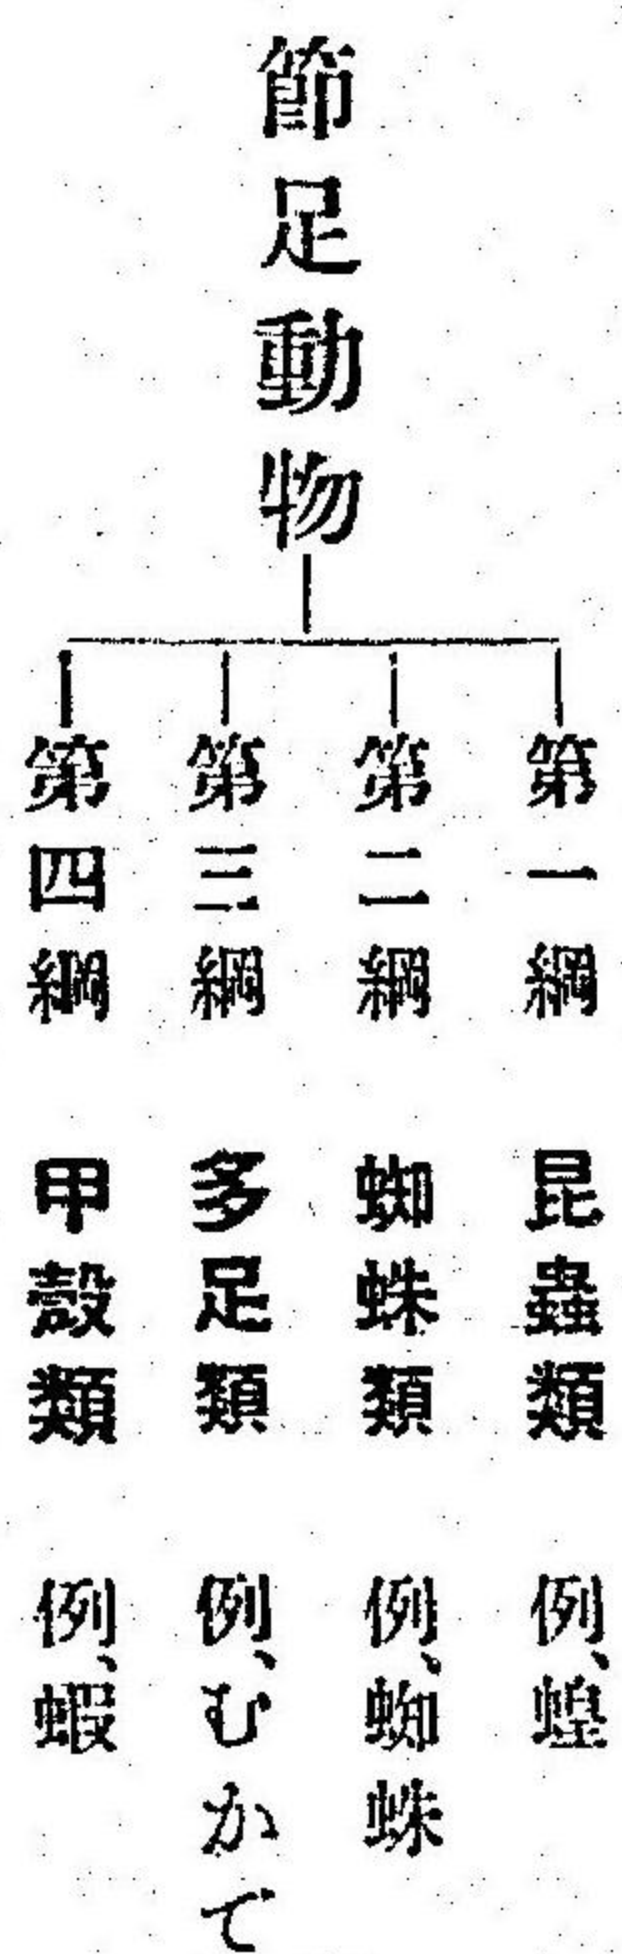 節足動物
第一綱 昆蟲類 例、蝗
第二綱 蜘蛛類 例、蜘蛛
第三綱 多足類 例、むかで
第四綱 甲殼類 例、蝦